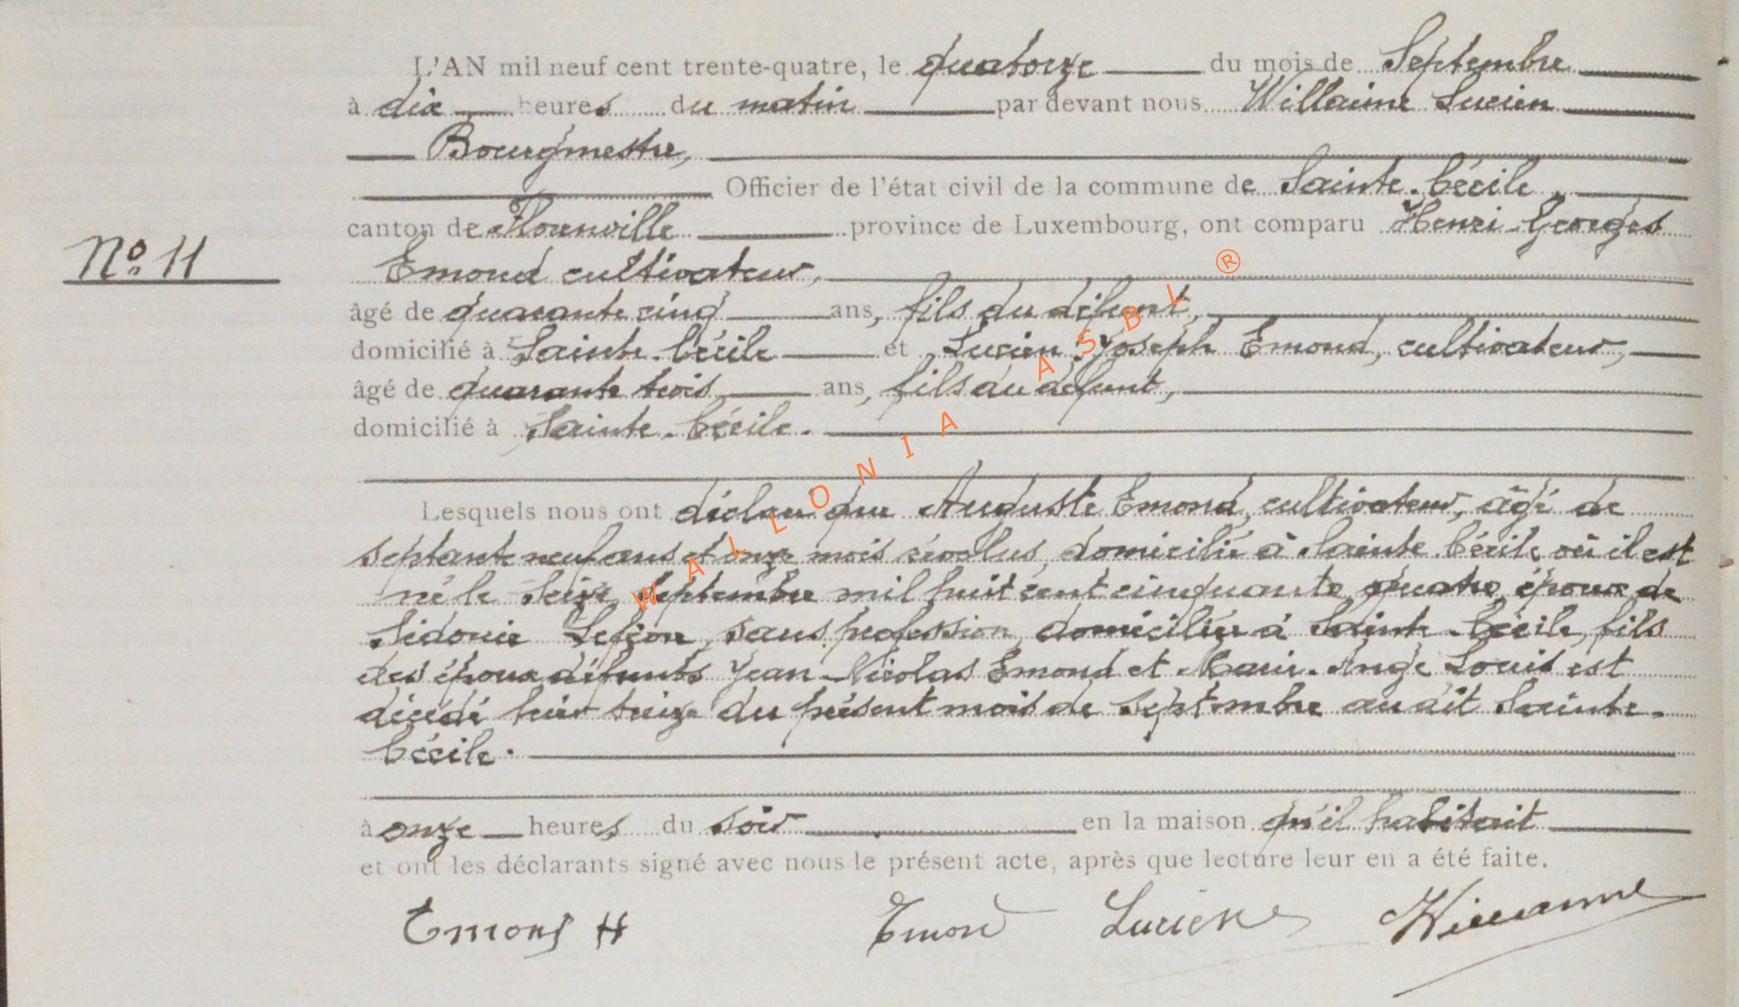 L'AN mil neuf cent trente-quatre, le quatorze du mois de Septembre
à dix heures du matin par devant nous Willaime Lucien
Bourgmestre,
Officier de l'état civil de la commune de Sainte-Cécile,
canton de Florenville province de Luxembourg, ont comparu Henri-Georges
Nº 11
Emond cultivateur,
âgé de quarante cinq ans, fils du défunt,
domicilié à Sainte-Cécile et Lucien Joseph Emond, cultivateur,
âgé de quarante trois ans, fils du défunt,
domicilié à Sainte-Cécile.
Lesquels nous ont déclaré que Auguste Emond, cultivateur, âgé de
septante neuf ans et onze mois révolus, domicilié à Sainte Cécile où il est
né le seize septembre mil huit cent cinquante quatre, époux de
Sidonie, sans profession, domiciliée à Sainte-Cécile, fils
des époux défunts Jean-Nicolas Emond et Marie-Ange Louis est
décédé hier treize du présent mois de septembre au dit Sainte-
Cécile.
à onze heures du soir en la maison qu'il habitait
et ont les déclarants signé avec nous le présent acte, après que lecture leur en a été faite.
Emond H Emond Lucien Willaime
WALLONIA ASBL ®